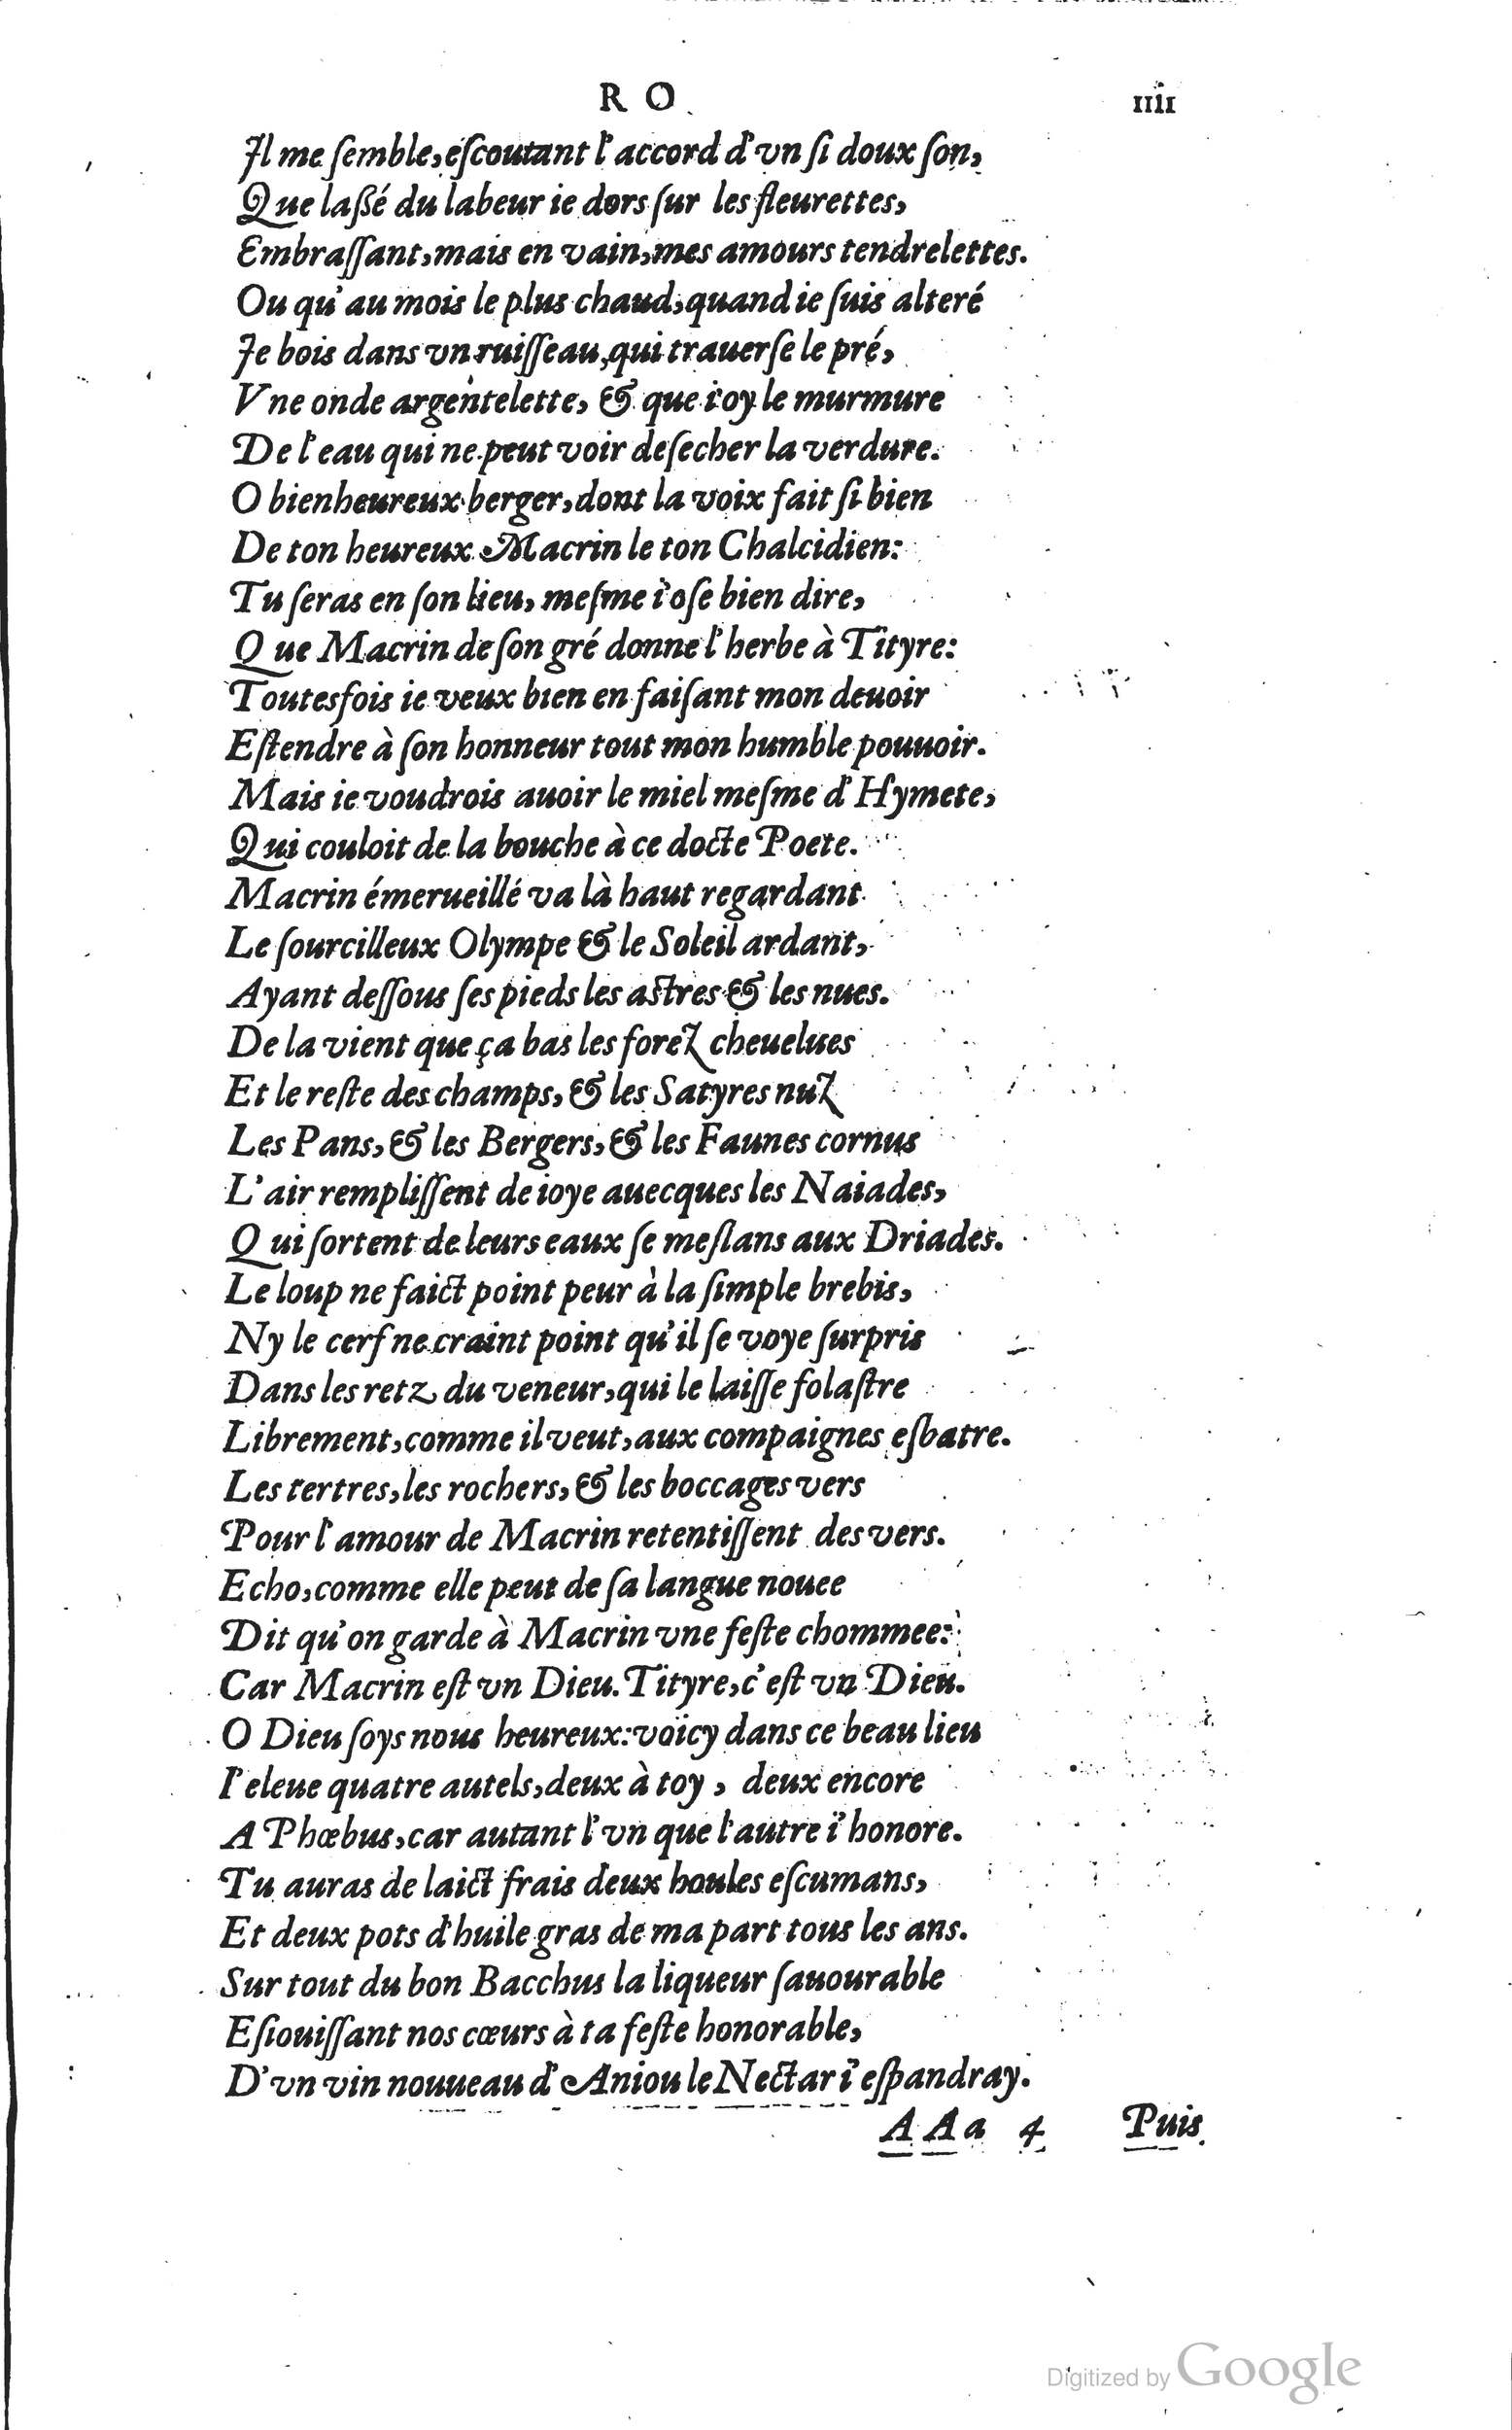 R O
IIII
Il me ſemble, eſcoutant l'accord d'vn ſi doux ſon,
Que laßé du labeur ie dors ſur les fleurettes,
Embraſſant, mais en vain, mes amours tendrelettes.
Ou qu'au mois le plus chaud, quand ie ſuis alteré
Je bois dans vn ruiſſeau, qui trauerſe le pré,
Vne onde argentelette, & que i'oy le murmure
De l'eau qui ne peut voir deſecher la verdure.
O bienheureux berger, dont la voix fait ſi bien
De ton heureux Macrin le ton Chalcidien:
Tu ſeras en ſon lieu, meſme i'oſe bien dire,
Que Macrin de ſon gré donne l'herbe à Tityre:
Toutesfois ie veux bien en faiſant mon deuoir
Eſtendre à ſon honneur tout mon humble pouuoir.
Mais ie voudrois auoir le miel meſme d'Hymete,
Qui couloit de la bouche à ce docte Poete.
Macrin émerueillé va là haut regardant
Le ſourcilleux Olympe & le Soleil ardant,
Ayant deſſous ſes pieds les aſtres & les nues.
De la vient que ça bas les forez cheuelues
Et le reſte des champs, & les Satyres nuz
Les Pans, & les Bergers, & les Faunes cornus
L'air rempliſſent de ioye auecques les Naiades,
Qui ſortent de leurs eaux ſe meſlans aux Driades.
Le loup ne faict point peur à la ſimple brebis,
Ny le cerf ne craint point qu'il ſe voye ſurpris
Dans les retz du veneur, qui le laiſſe folaſtre
Librement, comme il veut, aux compaignes eſbatre.
Les tertres, les rochers, & les boccages vers
Pour l'amour de Macrin retentiſſent des vers.
Echo, comme elle peut de ſa langue nouee
Dit qu'on garde à Macrin vne feſte chommee:
Car Macrin eſt vn Dieu. Tityre, c'eſt vn Dieu.
O Dieu ſoys nous heureux: voicy dans ce beau lieu
I'eleue quatre autels, deux à toy, deux encore
A Phœbus, car autant l'vn que l'autre i'honore.
Tu auras de laict frais deux boules eſcumans,
Et deux pots d'huile gras de ma part tous les ans.
Sur tout du bon Bacchus la liqueur ſauourable
Eſiouiſſant nos cœurs à ta feſte honorable,
D'vn vin nouueau d'Aniou le Nectar i'eſpandray.
A A a 4 Puis
Digitized by Google